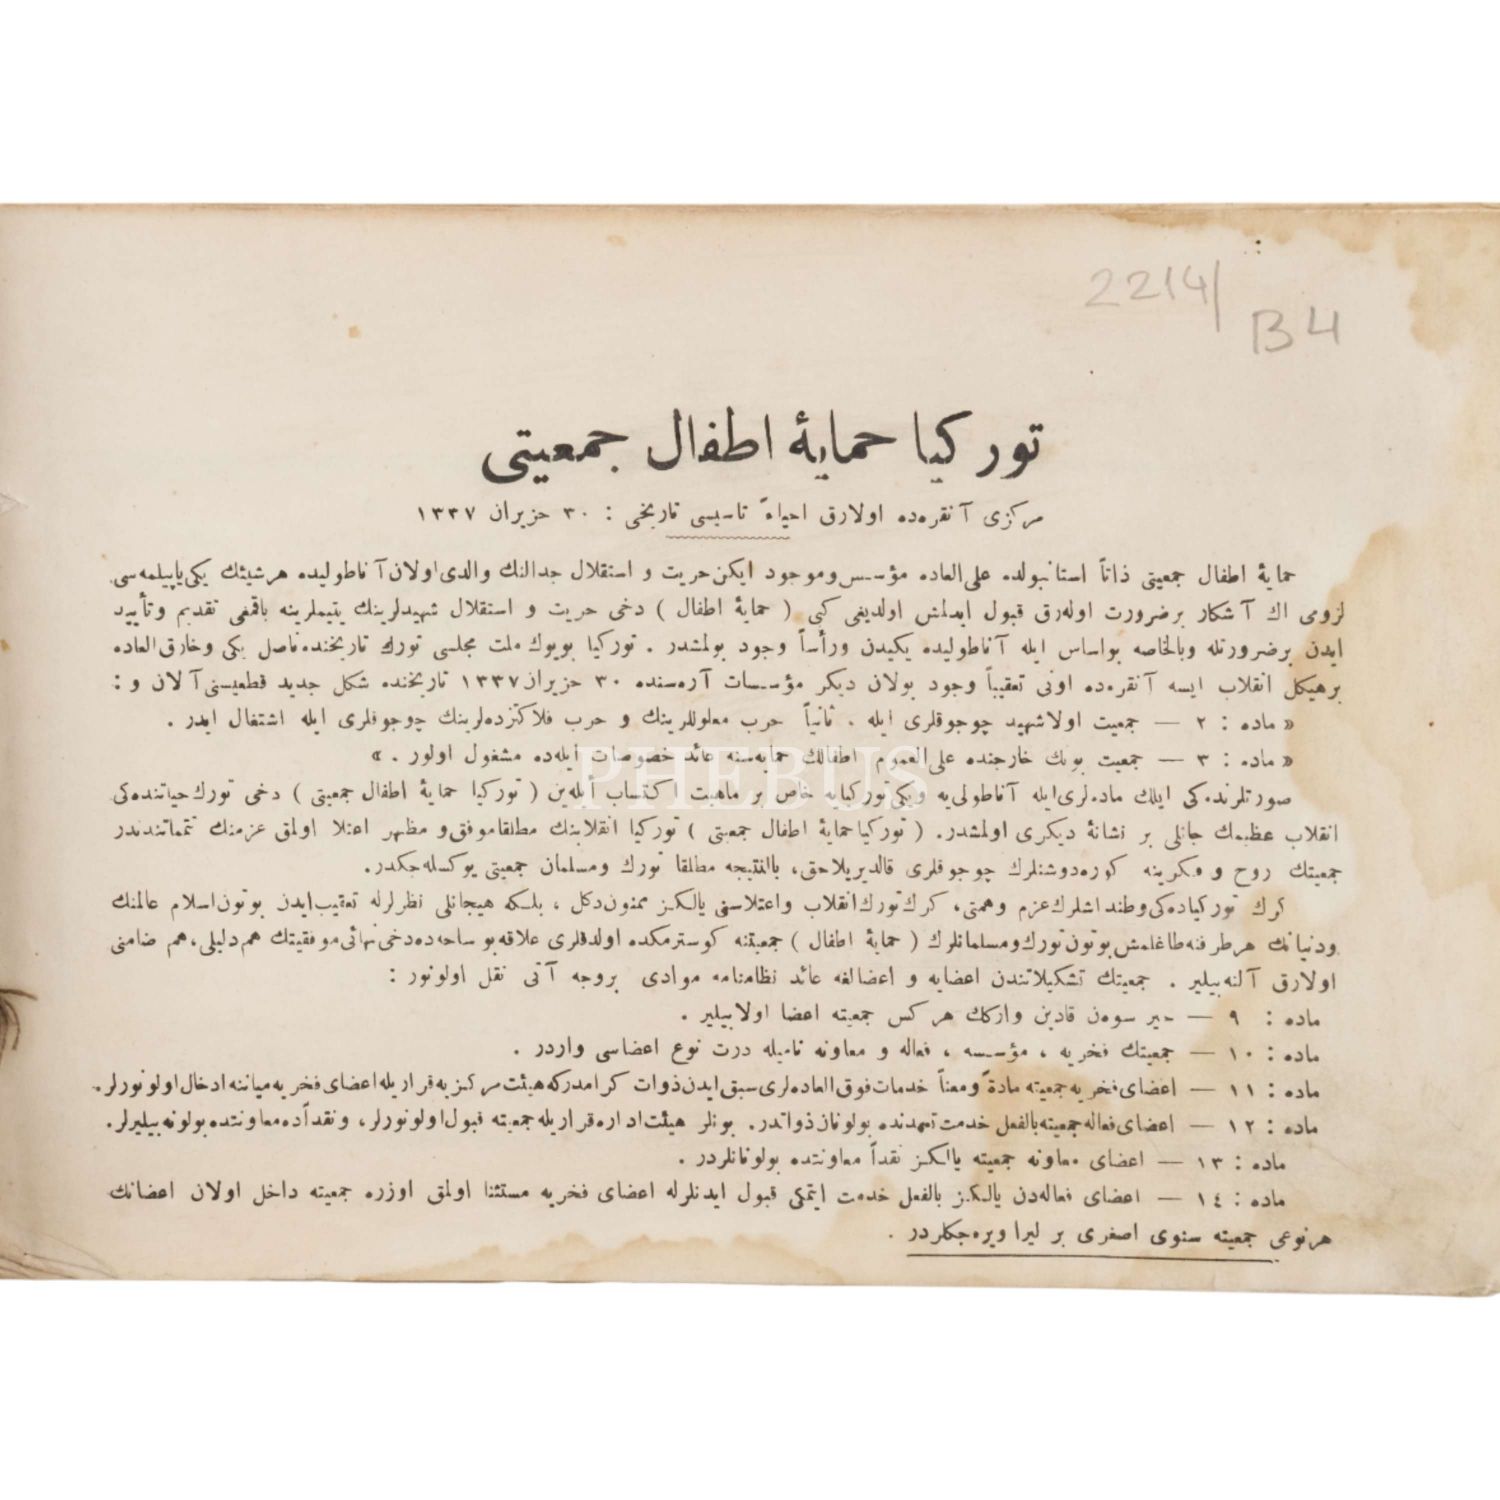 2214/
B4
توركيا حمايۀ اطفال جمعيتى
مركزى آنقره‌ده اولارق احياءً تاسيسى تاريخى : ٣٠ حزيران ١٣٣٧
حمايۀ اطفال جمعيتى ذاتاً استانبولده على العاده مؤسس وموجود ايكن حريت و استقلال جدالنك والدى اولان آناطوليده هرشيئك يكى ياپيلمه‌سى
لزومى اك آشكار برضرورت اوله‌رق قبول ايدلمش اولديغى كبى ( حمايۀ اطفال ) دخى حريت و استقلال شهيدلرينك يتيملرينه باقمغى تقديم وتأييد
ايدن برضرورتله وبالخاصه بواساس ايله آناطوليده يكيدن ورأساً وجود بولمشدر . توركيا بويوك ملت مجلسى تورك تاريخنده ناصل يكى وخارق العاده
برهيكل انقلاب ايسه آنقره‌ده اونى تعقيباً وجود بولان ديكر مؤسسات آره‌سنده ٣٠ حزيران ١٣٣٧ تاريخنده شكل جديد قطعيسنى آلان و :
« ماده : ٢ — جمعيت اولا شهيد چوجوقلرى ايله . ثانياً حرب معلوللرينك و حرب فلاكتزده‌لرينك چوجوقلرى ايله اشتغال ايدر .
« ماده : ٣ — جمعيت بونك خارجنده على العموم اطفالك حمايه‌سنه عائد خصوصات ايله‌ده مشغول اولور . »
صورتلرنده‌كى ايلك ماده‌لرى ايله آناطولى‌يه ويكى توركيايه خاص بر ماهيت اكتساب ايله‌ين ( توركيا حمايۀ اطفال جمعيتى ) دخى تورك حياتنده‌كى
انقلاب عظيمك جانلى بر نشانۀ ديكرى اولمشدر. ( توركيا حمايۀ اطفال جمعيتى ) توركيا انقلابنك مطلقا موفق و مظهر اعتلا اولمق عزمنك تتماتندندر
جمعيتك روح و فكرينه كوره دوشنلرك چوجوقلرى قالديريلاجق، بالنتيجه مطلقا تورك ومسلمان جمعيتى يوكسله‌جكدر.
كرك توركياده‌كى وطنداشلرك عزم وهمتى، كرك تورك انقلاب واعتلاسنى يالكز ممنون دكل ، بلكه هيجانلى نظرلرله تعقيب ايدن بوتون اسلام عالمنك
ودنيانك هر طرفنه طاغلمش بوتون تورك ومسلمانلرك ( حمايۀ اطفال ) جمعيتنه كوسترمكده اولدقلرى علاقه بو ساحه‌ده دخى نهائى موفقيتك هم دليلى، هم ضامنى
اولارق آلنه‌بيلير . جمعيتك تشكيلاتندن اعضايه و اعضالغه عائد نظامنامه موادى بروجه آتى نقل اولونور :
ماده : ٩ — خير سوه‌ن قادين واركك هر كس جمعيته اعضا اولابيلير .
ماده : ١٠ — جمعيتك فخريه ، مؤسسه ، فعاله و معاونه ناميله درت نوع اعضاسى واردر .
ماده : ١١ — اعضاى فخريه جمعيته مادةً ومعناً خدمات فوق العاده‌لرى سبق ايدن ذوات كرامدركه هيئت مركزيه قراريله اعضاى فخريه ميانه ادخال اولونورلر.
ماده : ١٢ — اعضاى فعاله جمعيته بالفعل خدمت تعهدنده بولونان ذواتدر. بونلر هيئت اداره قراريله جمعيته قبول اولونورلر، ونقداً ده معاونتده بولونه‌بيليرلر.
ماده : ١٣ — اعضاى معاونه جمعيته يالكز نقداً معاونتده بولونانلردر .
ماده : ١٤ — اعضاى فعاله‌دن يالكز بالفعل خدمت ايتمكى قبول ايدنلرله اعضاى فخريه مستثنا اولمق اوزره جمعيته داخل اولان اعضانك
هرنوعى جمعيته سنوى اصغرى بر ليرا ويره‌جكلردر .
PHEBUS